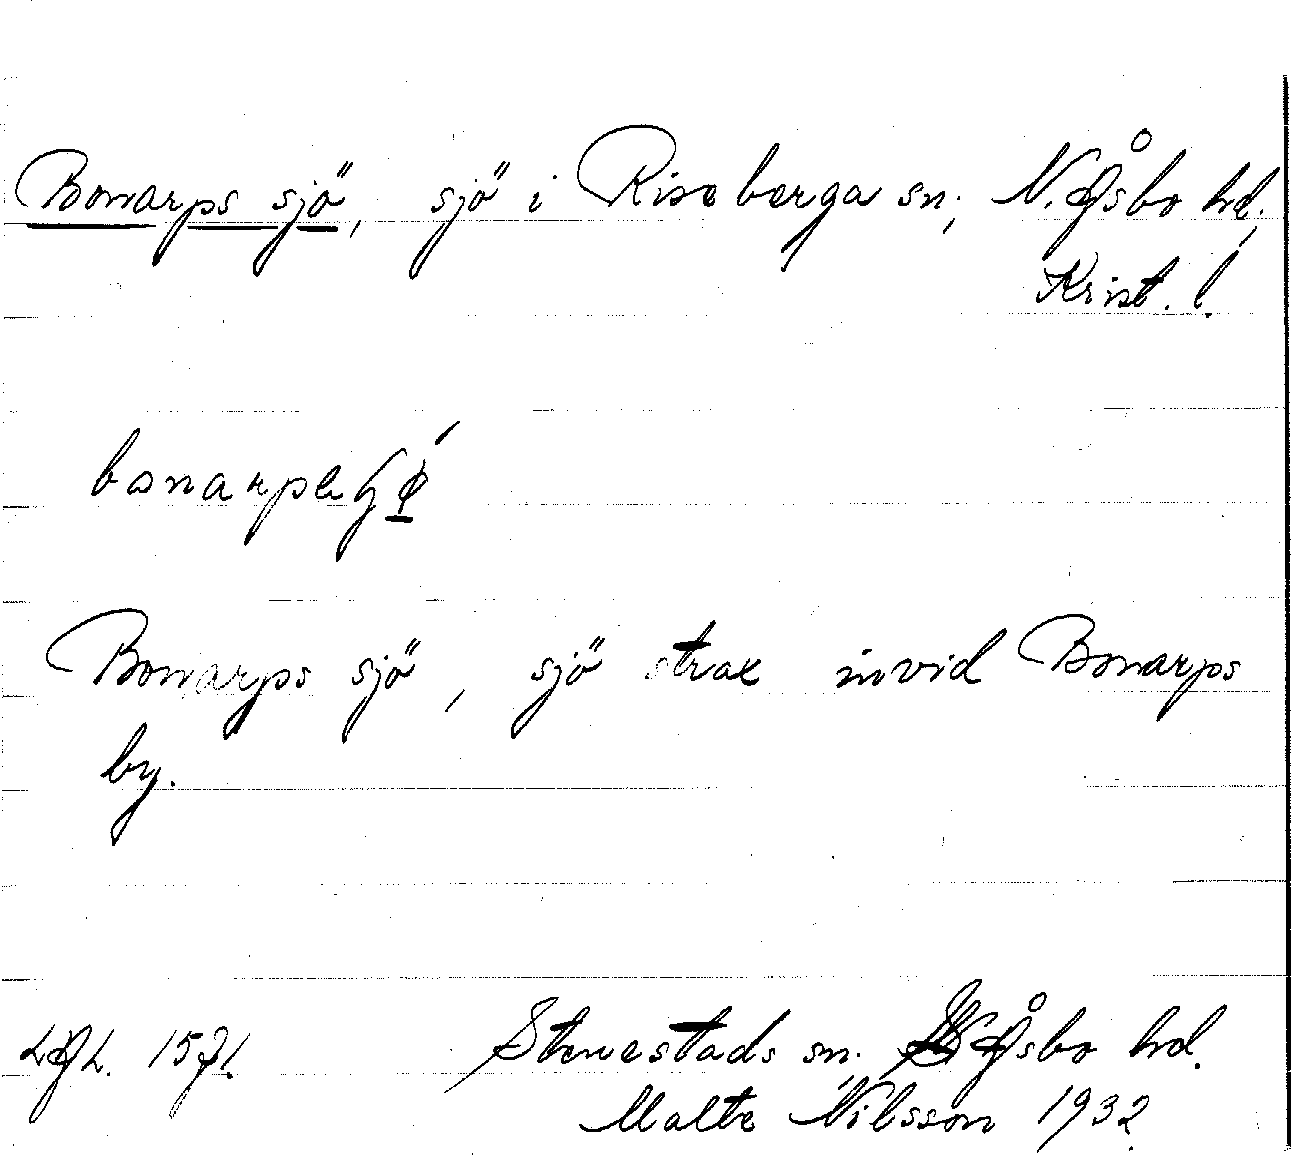 Bonarps sjö, sjö i Riseberga sn, N. Åsbo hd,
Krist. l.
Bonarps sjö, sjö strax invid Bonarps
by.
Stenestads sn, N Åsbo hd.
Malte Nilsson 1932.